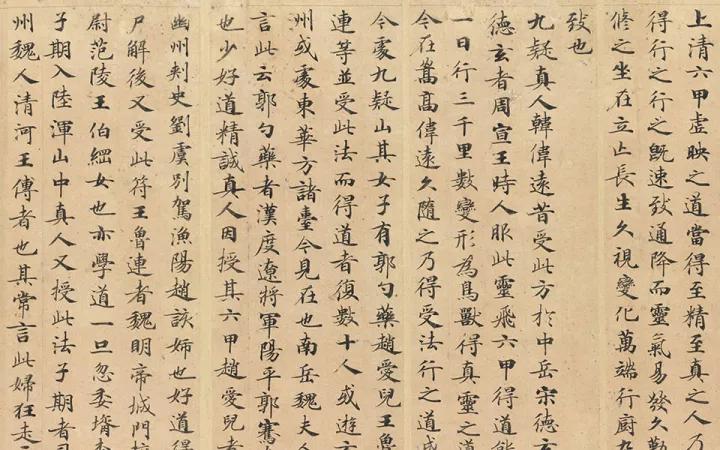 上清六甲虛映之道當得至精至真之人乃
得行之行之既速致通降而靈氣易發久勤
修之坐在立亡長生久視變化萬端行廚
致也
九疑真人韓偉遠昔受此方於中岳宋德玄
德玄者周宣王時人服此靈飛六甲得道能
一日行三千里數變形為鳥獸得真靈之道
今在嵩高偉遠久隨之乃得受法行之道成
今處九疑山其女子有郭勺藥趙愛兒王魯
連等並受此法而得道者復數十人或遊玄
州或處東華方諸臺今見在也南岳魏夫人
言此云郭勺藥者漢度遼將軍陽平郭騫女
也少好道精誠真人因授其六甲趙愛兒者
幽州刾史劉虞別駕漁陽趙該姊也好道得
尸解後又受此符王魯連者魏明帝城門校
尉范陵王伯綱女也亦學道一旦忽委壻李
子期入陸渾山中真人又授此法子期者司
州魏人清河王傳者也其常言此婦狂走